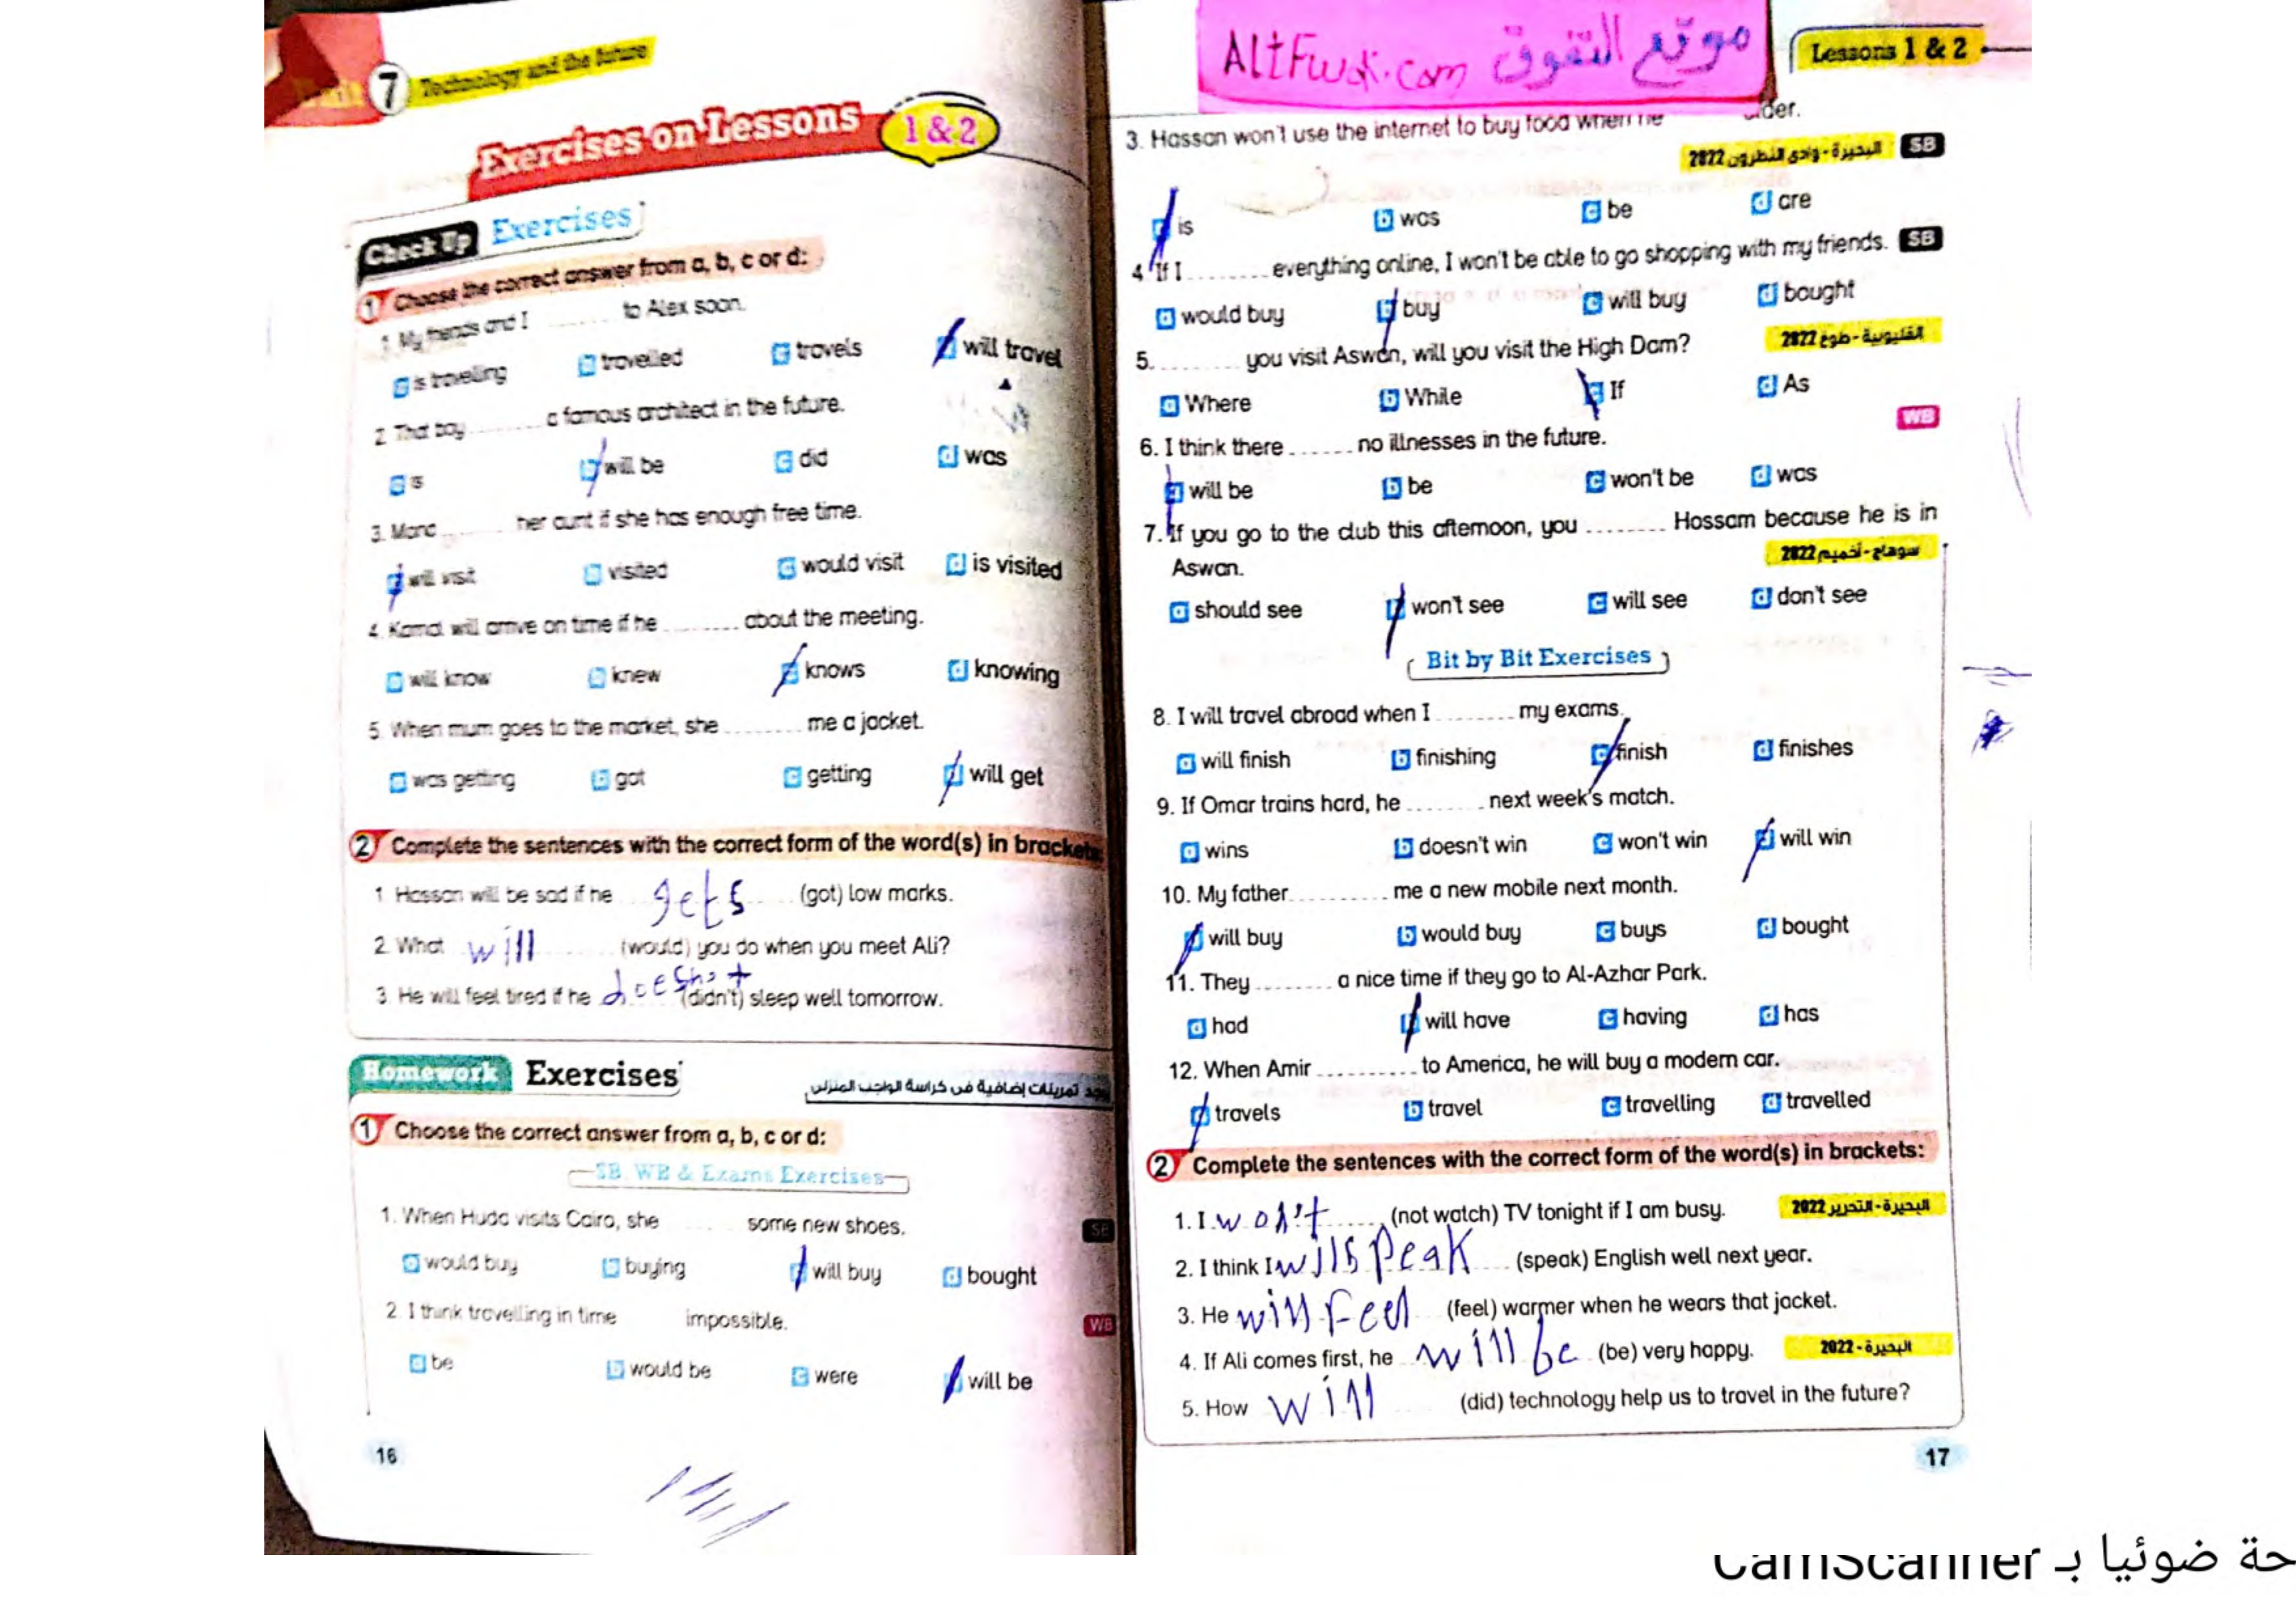 7 Technology and the future
Exercises on Lessons 1 & 2
Check Up Exercises
1 Choose the correct answer from a, b, c or d:
1. My friends and I ........ to Alex soon.
a is travelling b travelled c travels d will travel
2. That boy ........ a famous architect in the future.
a is b will be c did d was
3. Mona ........ her aunt if she has enough free time.
a will visit b visited c would visit d is visited
4. Kamal will arrive on time if he ........ about the meeting.
a will know b knew c knows d knowing
5. When mum goes to the market, she ........ me a jacket.
a was getting b got c getting d will get
2 Complete the sentences with the correct form of the word(s) in brackets:
1. Hassan will be sad if he gets (got) low marks.
2. What will (would) you do when you meet Ali?
3. He will feel tired if he doesn't (didn't) sleep well tomorrow.
Homework Exercises
تمرينات إضافية فى كراسة الواجب المنزلى
1 Choose the correct answer from a, b, c or d:
SB, WB & Exams Exercises
1. When Huda visits Cairo, she ........ some new shoes. SB
a would buy b buying c will buy d bought
2. I think travelling in time ........ impossible. WB
a be b would be c were d will be
16
AltFwok.com موقع التفوق
Lessons 1 & 2
3. Hassan won't use the internet to buy food when he older.
البحيرة - وادى النطرون 2022 SB
a is b was c be d are
4. If I ........ everything online, I won't be able to go shopping with my friends. SB
a would buy b buy c will buy d bought
5. ........ you visit Aswan, will you visit the High Dam? القليوبية - طوخ 2022
a Where b While c If d As
6. I think there ....... no illnesses in the future. WB
a will be b be c won't be d was
7. If you go to the club this afternoon, you ........ Hossam because he is in
Aswan. سوهاج - أخميم 2022
a should see b won't see c will see d don't see
Bit by Bit Exercises
8. I will travel abroad when I ........ my exams.
a will finish b finishing c finish d finishes
9. If Omar trains hard, he ........ next week's match.
a wins b doesn't win c won't win d will win
10. My father ......... me a new mobile next month.
a will buy b would buy c buys d bought
11. They ........ a nice time if they go to Al-Azhar Park.
a had b will have c having d has
12. When Amir .......... to America, he will buy a modern car.
a travels b travel c travelling d travelled
2 Complete the sentences with the correct form of the word(s) in brackets:
1. I won't (not watch) TV tonight if I am busy. البحيرة - التحرير 2022
2. I think I will speak (speak) English well next year.
3. He will feel (feel) warmer when he wears that jacket.
4. If Ali comes first, he will be (be) very happy. البحيرة - 2022
5. How will (did) technology help us to travel in the future?
17
حة ضوئيا بـ CamScanner